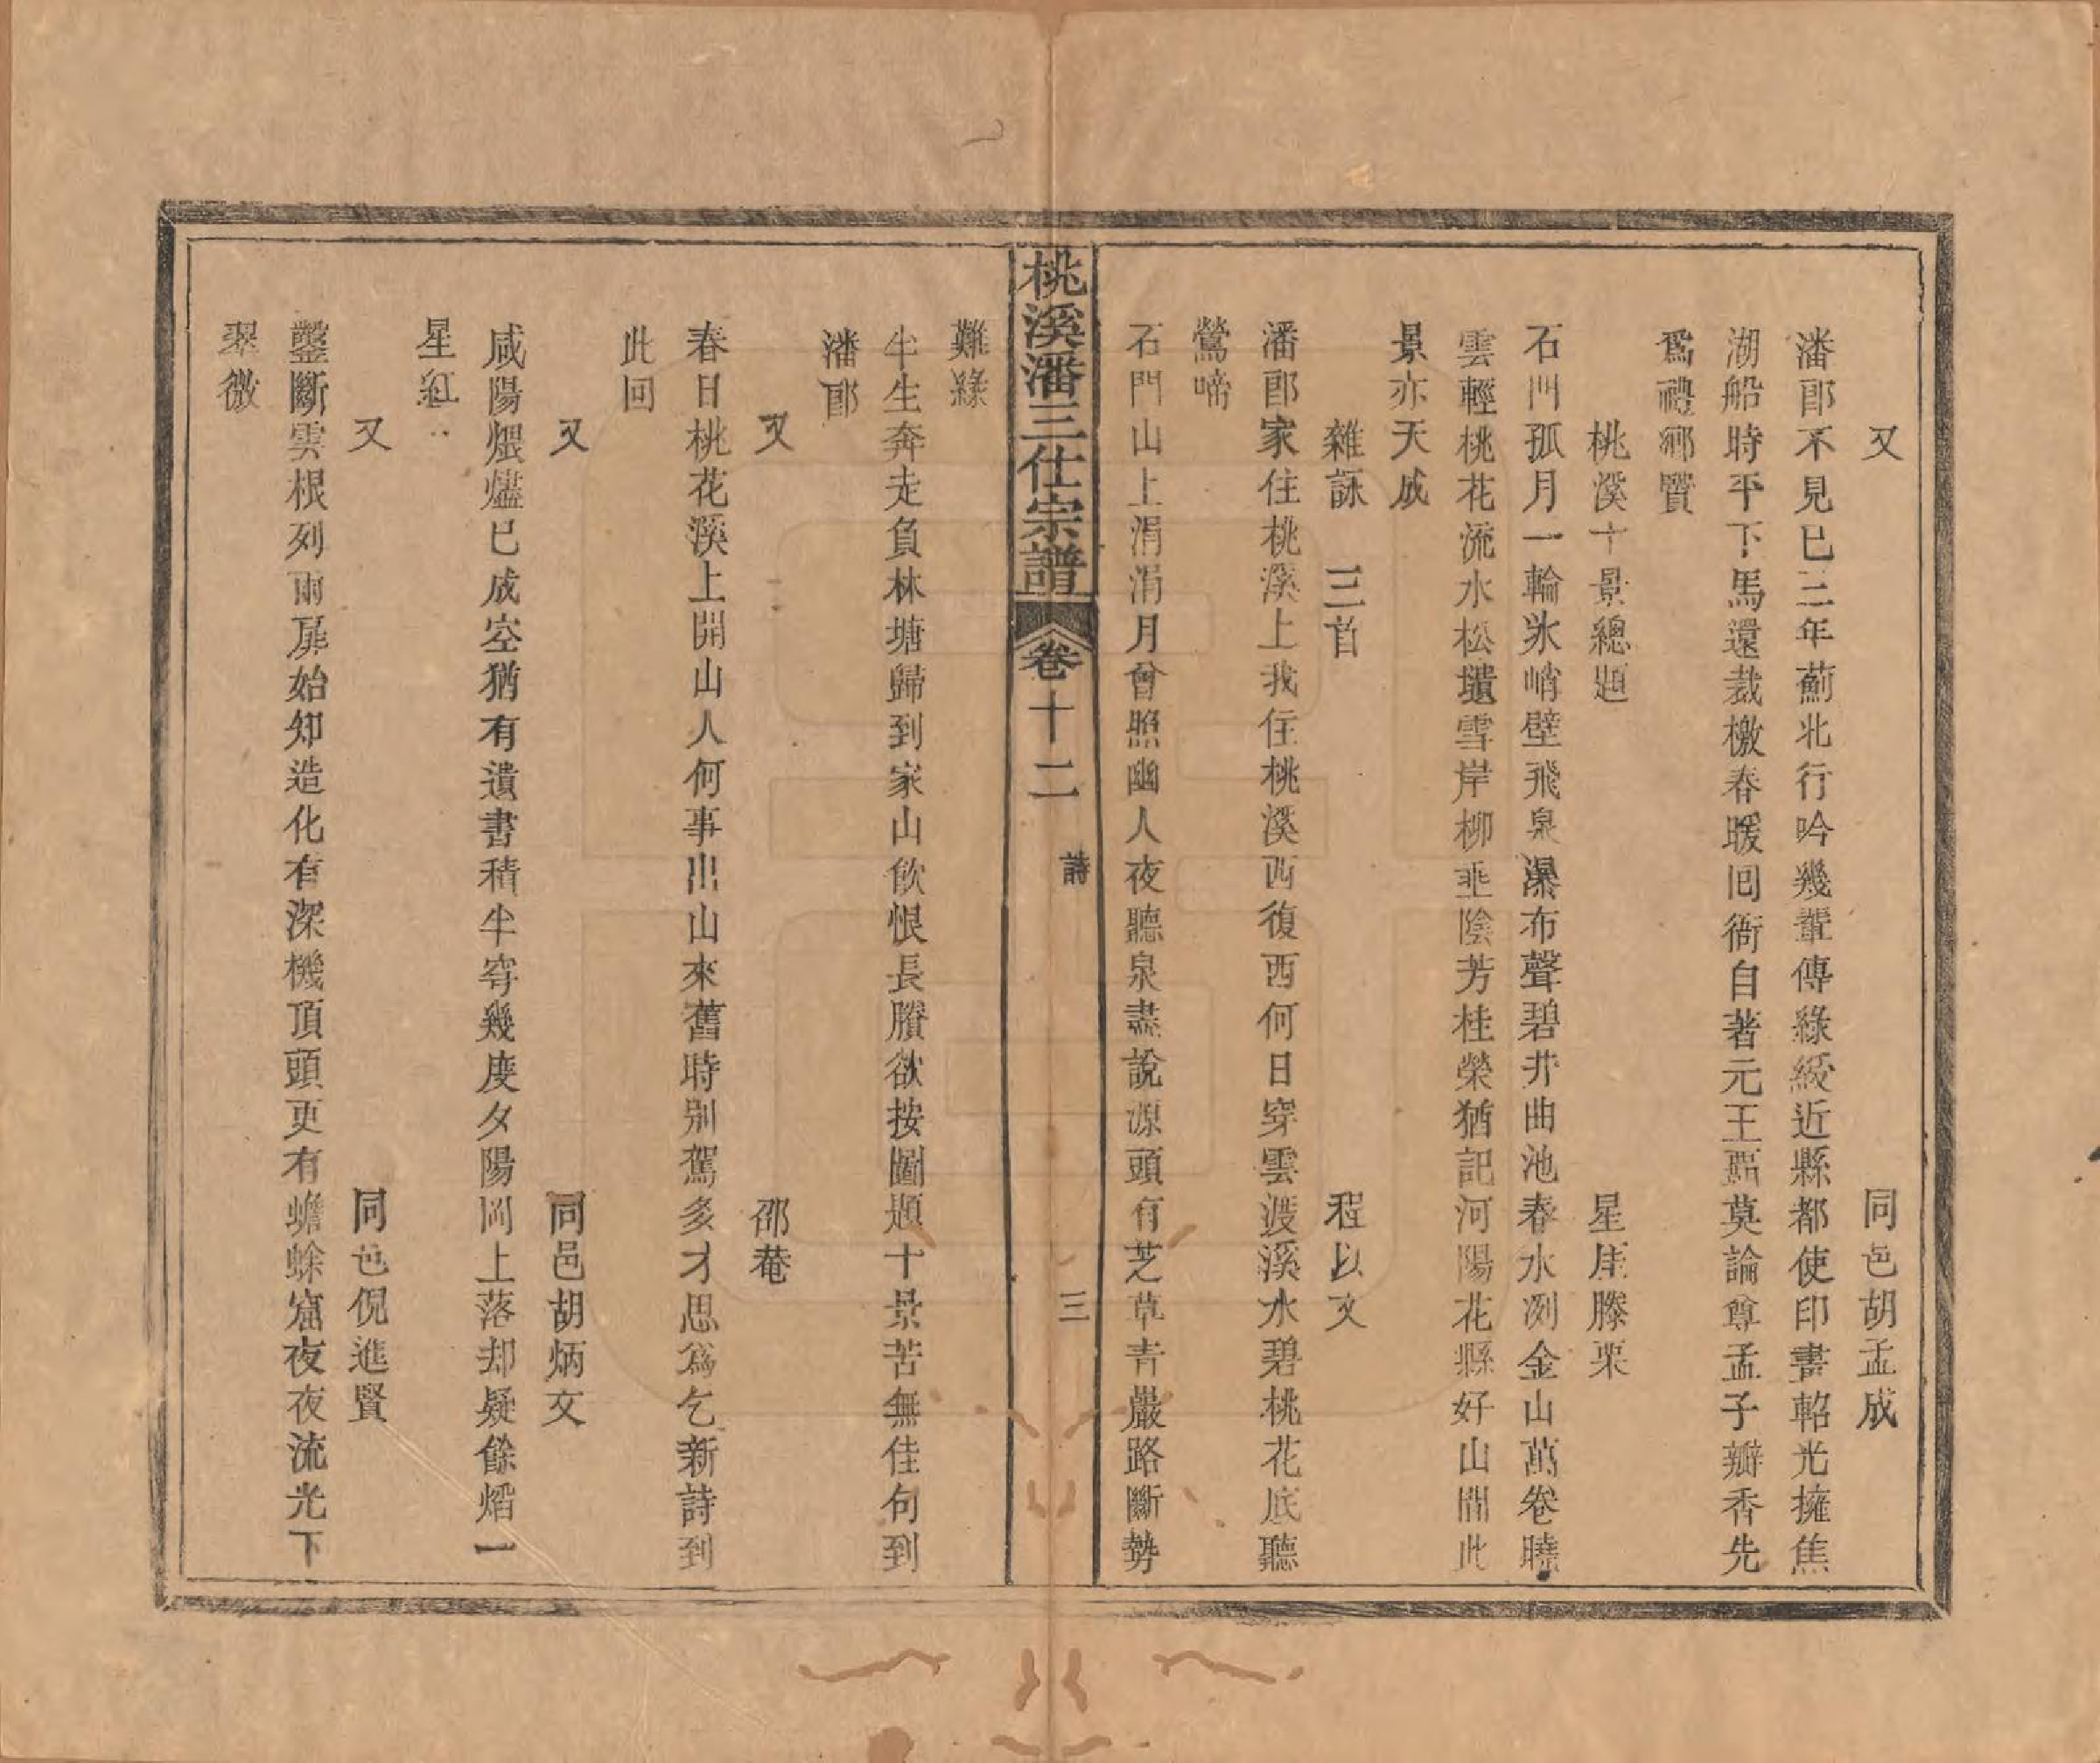 又　同邑胡孟成
潘郎不見已三年薊北行吟幾輩傳綠綬近縣都使印書軺光擁焦
湖船時平下馬還裁檄春暖回衙自著元王蘇莫論尊孟子瓣香先
爲禮鄉賢
桃溪十景總題　星崖滕栗
石門孤月一輪氷峭壁飛泉瀑布聲碧井曲池春水洌金山萬卷曉
雲輕桃花流水松墳雪岸柳垂陰芳桂榮猶記河陽花縣好山間此
景亦天成
雜詠　三首　程以文
潘郎家住桃溪上我住桃溪西復西何日穿雲渡溪水碧桃花底聽
鶯啼
石門山上涓涓月曾照幽人夜聽泉盡說源頭有芝草青巖路斷勢
桃溪潘三仕宗譜　卷十二　詩　三
難緣
半生奔走負林塘歸到家山飲恨長賸欲按圖題十景苦無佳句到
潘郎
又　邵菴
春日桃花溪上開山人何事出山來舊時別駕多才思爲乞新詩到
此回
又　同邑胡炳文
咸陽煨燼已成空猶有遺書積半穹幾度夕陽岡上落却疑餘熖一
星紅
又　同邑倪進賢
鑿斷雲根列兩扉始知造化有深機頂頭更有蟾蜍窟夜夜流光下
翠微